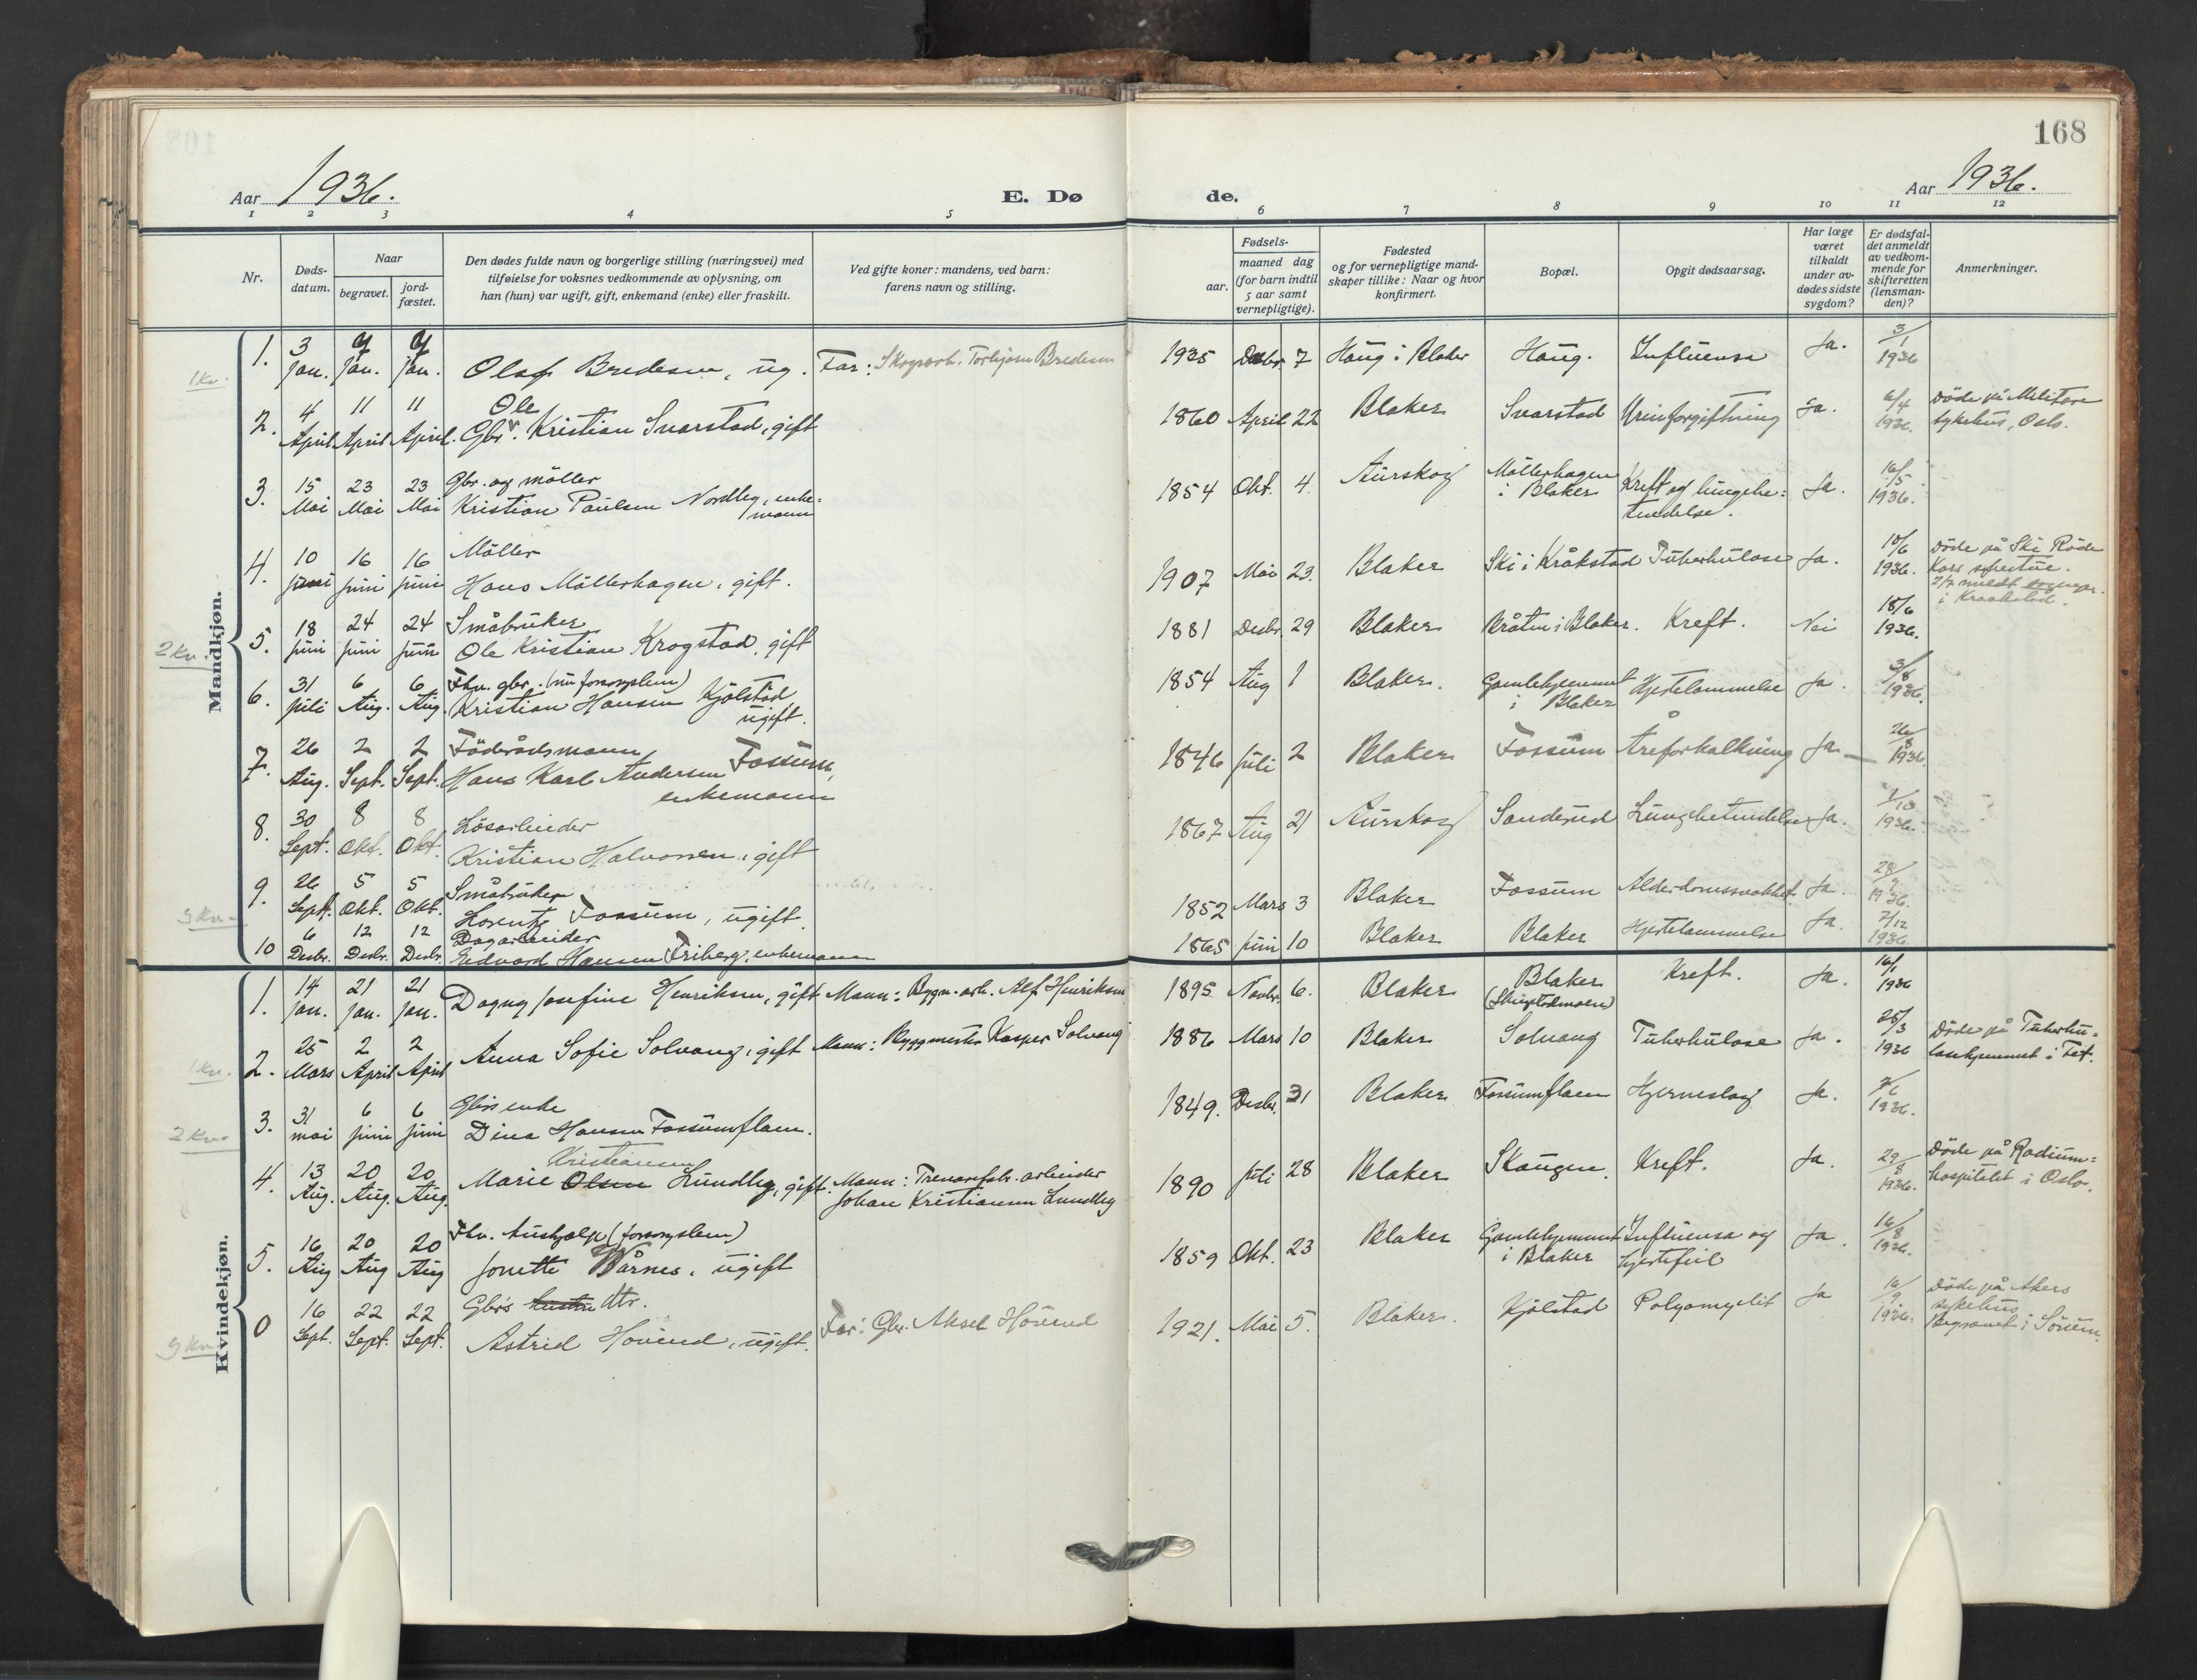 168
Aar 1936.
E. Dø
de.
Aar 1936.
1 2 3 4 5 6 7 8 9 10 11 12
Nr.
Døds-
datum.
Naar
begravet.
jord-
fæstet.
Den dødes fulde navn og borgerlige stilling (næringsvei) med
tilføielse for voksnes vedkommende av oplysning, om
han (hun) var ugift, gift, enkemand (enke) eller fraskilt.
Ved gifte koner: mandens, ved barn:
farens navn og stilling.
Fødsels-
aar.
maaned dag
(for barn indtil
5 aar samt
vernepligtige).
Fødested
og for vernepligtige mand-
skaper tillike: Naar og hvor
konfirmert.
Bopæl.
Opgit dødsaarsag.
Har læge
været
tilkaldt
under av-
dødes sidste
sygdom?
Er dødsfal-
det anmeldt
av vedkom-
mende for
skifteretten
(lensman-
den)?
Anmerkninger.
Mandkjøn.
1 Kv.
1. 3 Jan. 9 Jan. 9 Jan. Olaf Bredesen, ug. Far: Skogsarb. Torbjørn Bredesen 1935 Desbr. 7 Haug i Blaker Haug. Influensa Ja. 3/1 1936
2. 4 April 11 April 11 April. Gbr. Ole Kristian Svarstad, gift 1860 April 22 Blaker Svarstad Urinforgiftning Ja. 6/4 1936. Døde på Militære
sykehus, Oslo.
3. 15 Mai 23 Mai 23 Mai Gbr. og møller
Kristian Paulsen Nordby, enke-
mann 1854 Okt. 4. Aurskog Møllerhagen
i Blaker Kreft og lungebe-
tendelse. Ja. 16/5 1936.
4. 10 juni 16 juni 16 juni Møller
Hans Møllerhagen, gift. 1907 Mai 23. Blaker Ski i Kråkstad Tuberkulose Ja. 10/6 1936. Døde på Ski Røde
Kors
i Kraakstad.
2 Kv.
5. 18 juni 24 juni 24 juni Småbruker
Ole Kristian Krogstad, gift 1881 Desbr. 29 Blaker Bråten i Blaker. Kreft. Nei 18/6 1936.
6. 31 juli 6 Aug. 6 Aug. Fhv. gbr. (nu forsorgslem)
Kristian Hansen Kjølstad
ugift. 1854 Aug 1 Blaker. Gamlehjemmet
i Blaker Hjertelammelse Ja. 3/8 1936.
7. 26 Aug. 2 Sept. 2 Sept. Føderådsmann
Hans Karl Andersen Fossum,
enkemann 1846 juli 2 Blaker Fossum Åreforkalkning Ja 26/8 1936.
8. 30 Sept. 8 Okt. 8 Okt. Løsarbeider
Kristian Halvorsen, gift 1867 Aug 21 Aurskog Sanderud Lungebetendelse Ja. 1/10 1936.
3 Kv.
9. 26 Sept. 5 Okt. 5 Okt. Småbruker
Lorentz Fossum, ugift. 1852 Mars 3 Blaker Fossum Alderdomssvakhet. Ja. 28/9 1936.
10 6 Desbr. 12 Desbr. 12 Desbr. Dagarbeider
Edvard Hansen Friberg, enkemann 1865 juni 10 Blaker Blaker Hjertelammelse Ja. 7/12 1936.
Kvindekjøn.
1. 14 Jan. 21 Jan. 21 Jan. Dagny Josefine Henriksen, gift Mann: Bygn. arb. Alf Henriksen 1895 Novbr. 6. Blaker Blaker Kreft. Ja. 16/1 1936
1 Kv.
2. 25 Mars 2 April 2 April Anna Sofie Solvang, gift Mann: Byggmester Kasper Solvang 1886 Mars 10 Blaker Solvang Tuberkulose Ja. 25/3 1936 Døde på Tuberku-
losehjemmet i Fet.
2 Kv.
3. 31 mai 6 juni 6 juni Gbrs enke
Dina Hansen Fossumflaen. 1849. Desbr. 31 Blaker Fossumflaen Hjerneslag Ja. 1936.
4. 13 Aug. 20 Aug. 20 Aug. Kristiansen
Marie Olsen Lundby, gift. Mann: Trevarefabr. arbeider
Johan Kristiansen Lundby 1890 juli 28 Blaker Skaugen. Kreft. Ja. 29/8 1936. Døde på Radium-
hospitalet i Oslo.
5. 16 Aug 20 Aug 20 Aug Fhv. hushjelp (forsorgslem)
Jonette Wårnes, ugift 1859 Okt. 23 Blaker Gamlehjemmet
i Blaker Influensa og
hjertefeil Ja. 16/8 1936.
3 Kv.
0 16 Sept. 22 Sept. 22 Sept. Gbrs hustru dtr.
Astrid Hovind, ugift. Far: Gbr. Aksel Hovind 1921. Mai 5. Blaker. Kjølstad Polyomyelit Ja 16/9 1936. Døde på Akers
sykehus
Begravet i Sørum.